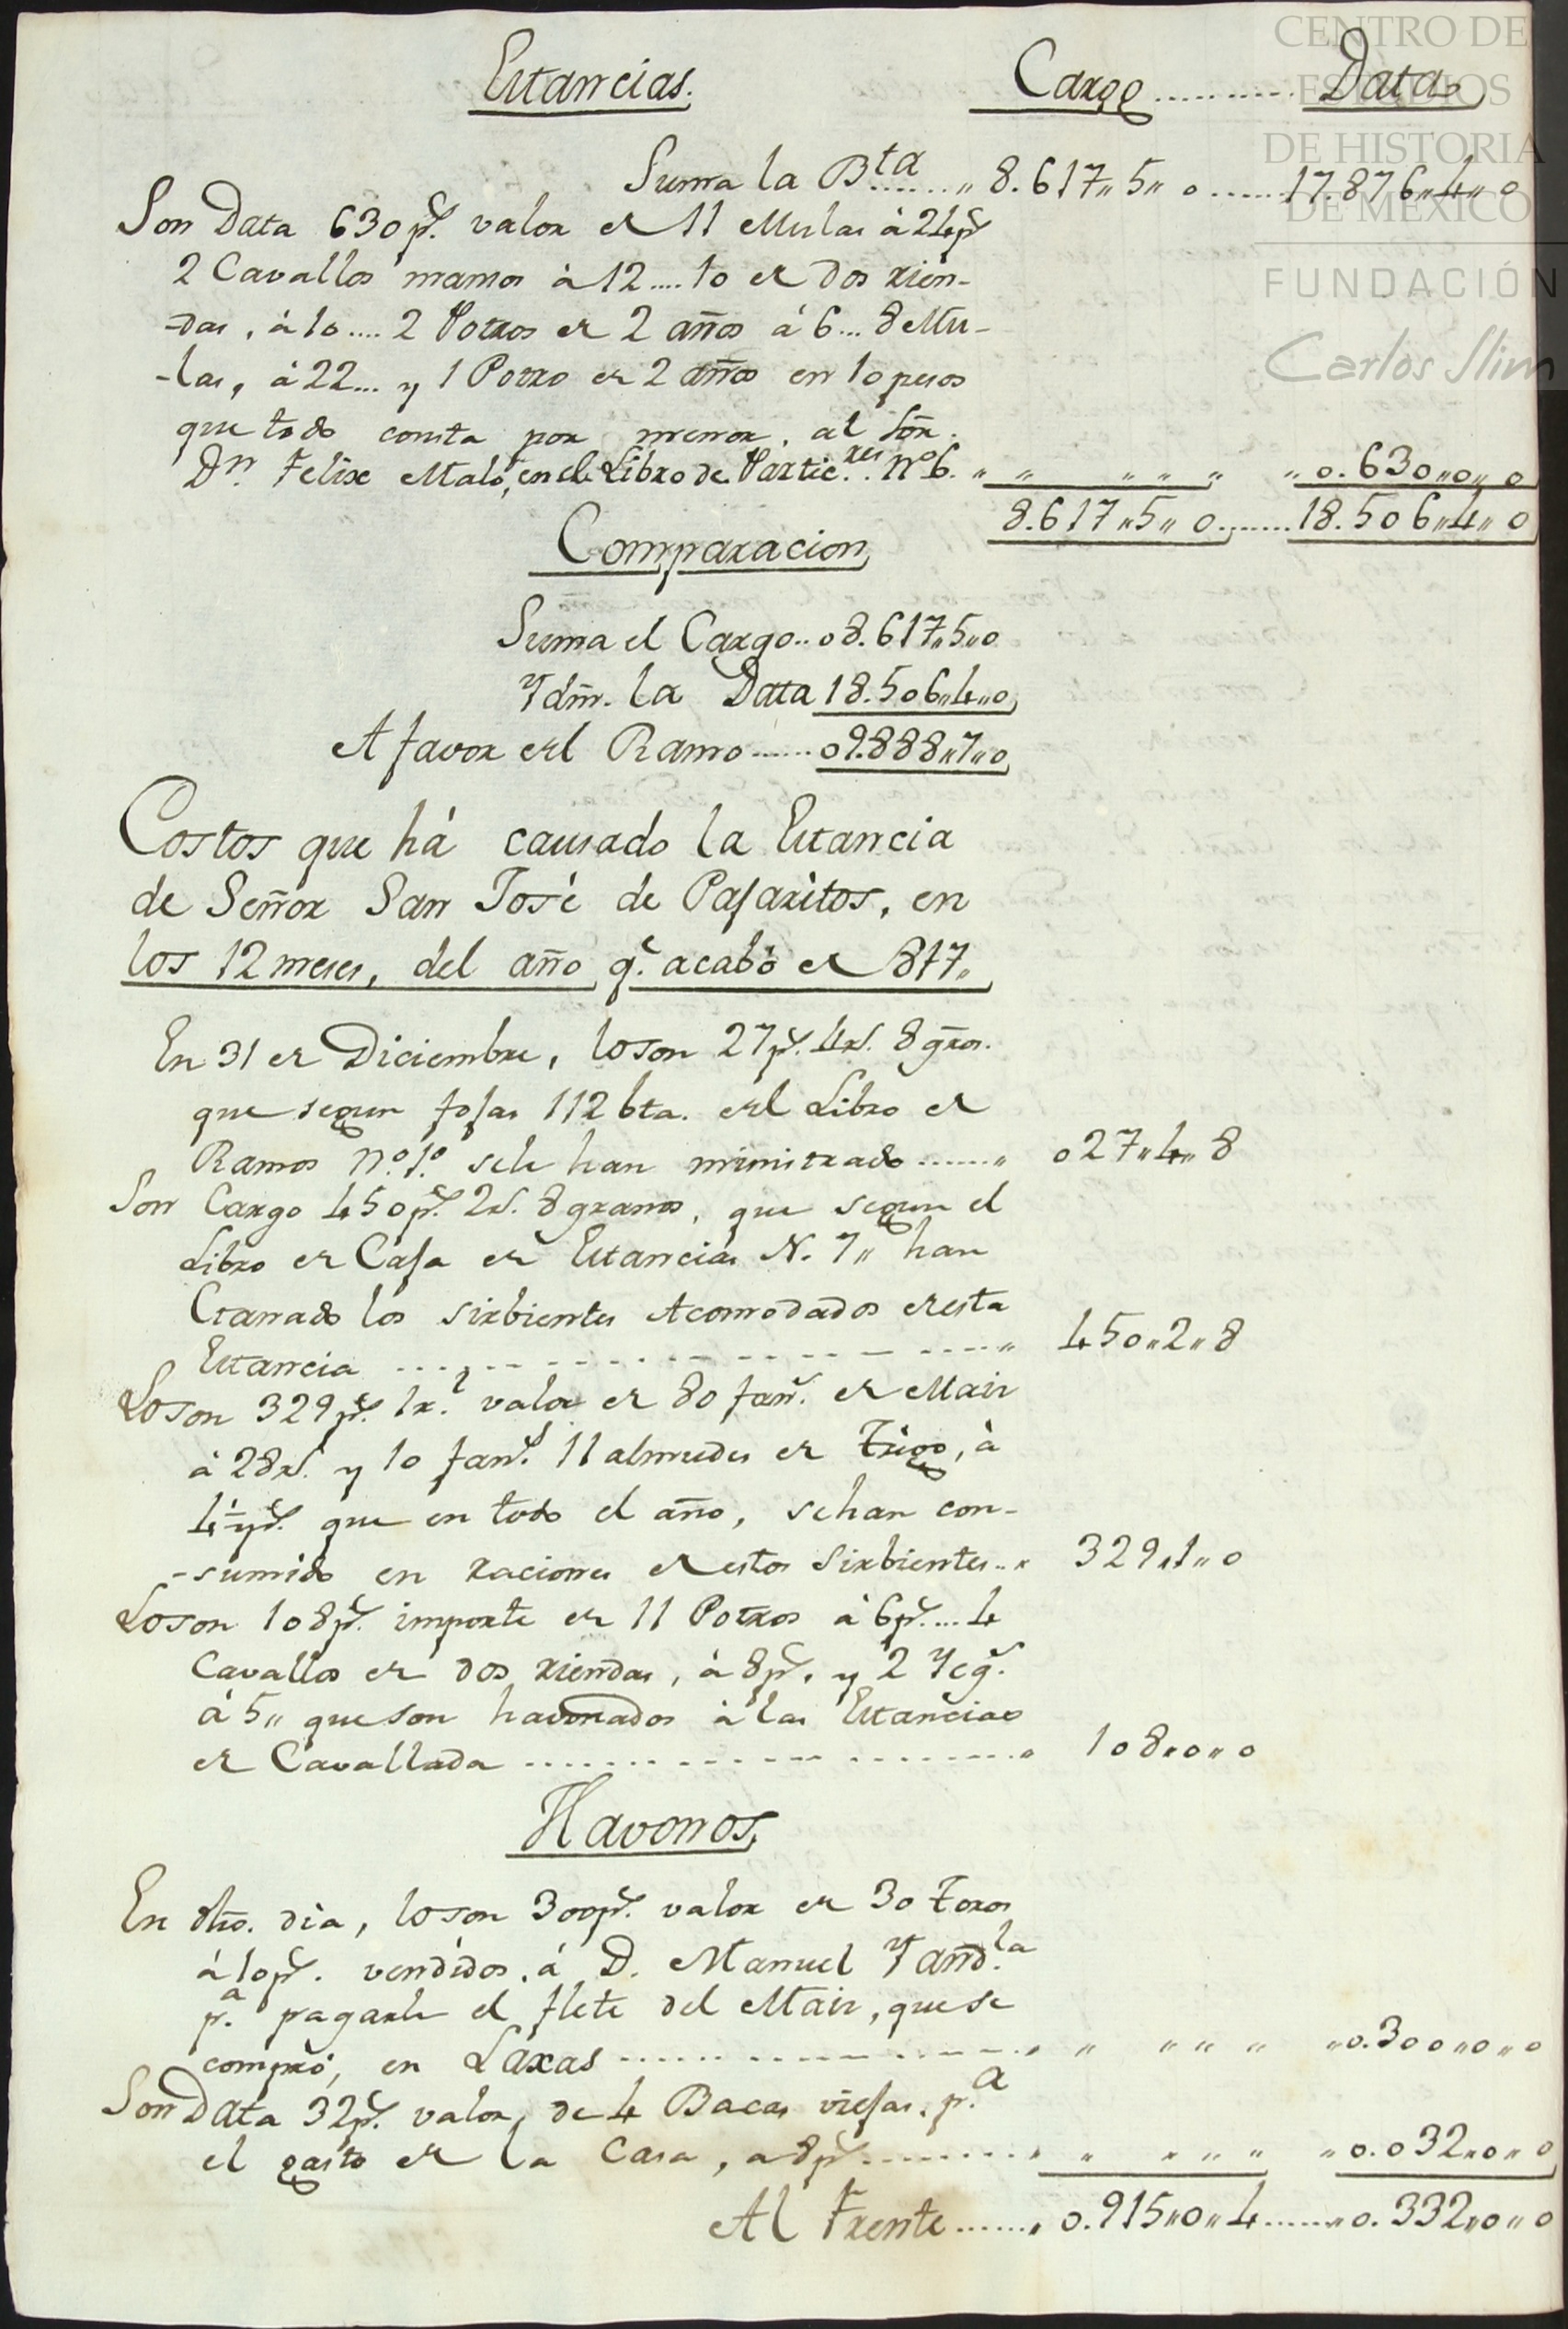 Estancias. Cargo .......... Data
Suma la Bta ...... " 8.617"5"0 ...... 17.876"4"0
Son Data 630 ps. valor de 11 Mulas à 24 ps
2 Cavallos mansos à 12 .... 10 de dos rien-
-das, à 10 .... 2 Potros de 2 años à 6 ... 8 Mu-
-las, à 22 ... y 1 Potro de 2 años en 10 pesos
que todo consta por menor, al Sōr.
Dn. Felix Malo, en el Libro de Partic.res No 6. " " " " " " 0.630"0"0
8.617"5"0 ...... 18.506"4"0
Comparacion
Suma el Cargo .. 08.617"5"0
Ydm̄. la Data 18.506"4"0
A favor del Ramo ...... 09.888"7"0
Costos que há causado la Estancia
de Señor San José de Pajaritos, en
los 12 meses, del año qe. acabó de 817"
En 31 de Diciembre, lo son 27 ps. 4 rs. 8 grōs.
que segun fojas 112 bta. del Libro de
Ramos No. 1o. se le han ministrado ....... " 027"4"8
Son Cargo 450 ps. 2 rs. 8 granos, que segun el
Libro de Caja de Estancias N. 7" han
Ganado los sirbientes Acomodados de esta
Estancia ................ " 450"2"8
Lo son 329 ps. 1 rl. valor de 80 fans. de Mais
à 28 rs. y 10 fans. 11 almudes de Trigo, à
4 ps. que en todo el año, se han con-
-sumido en raciones de estos Sirbientes .. " 329"1"0
Lo son 108 ps. importe de 11 Potros à 6 ps. ... 4
Cavallos de dos riendas, à 8 ps. y 2 Yegs.
à 5" que son havonados à las Estancias
de Cavallada ................ " 108"0"0
Havonos
En dho. dia, lo son 300 ps. valor de 30 Toros
à 10 ps. vendidos, à D. Manuel Yañd.la
pa. pagarle el flete del Mais, que se
compró, en Laxas ................ " " " " " " 0.300"0"0
Son Data 32 ps. valor, de 4 Bacas viejas, pa.
el gasto de la Casa, a 8 ps. ......... " " " " " " 0.032"0"0
Al Frente ....... " 0.915"0"4 ...... " 0.332"0"0
CENTRO DE
ESTUDIOS
DE HISTORIA
DE MÉXICO
FUNDACIÓN
Carlos Slim